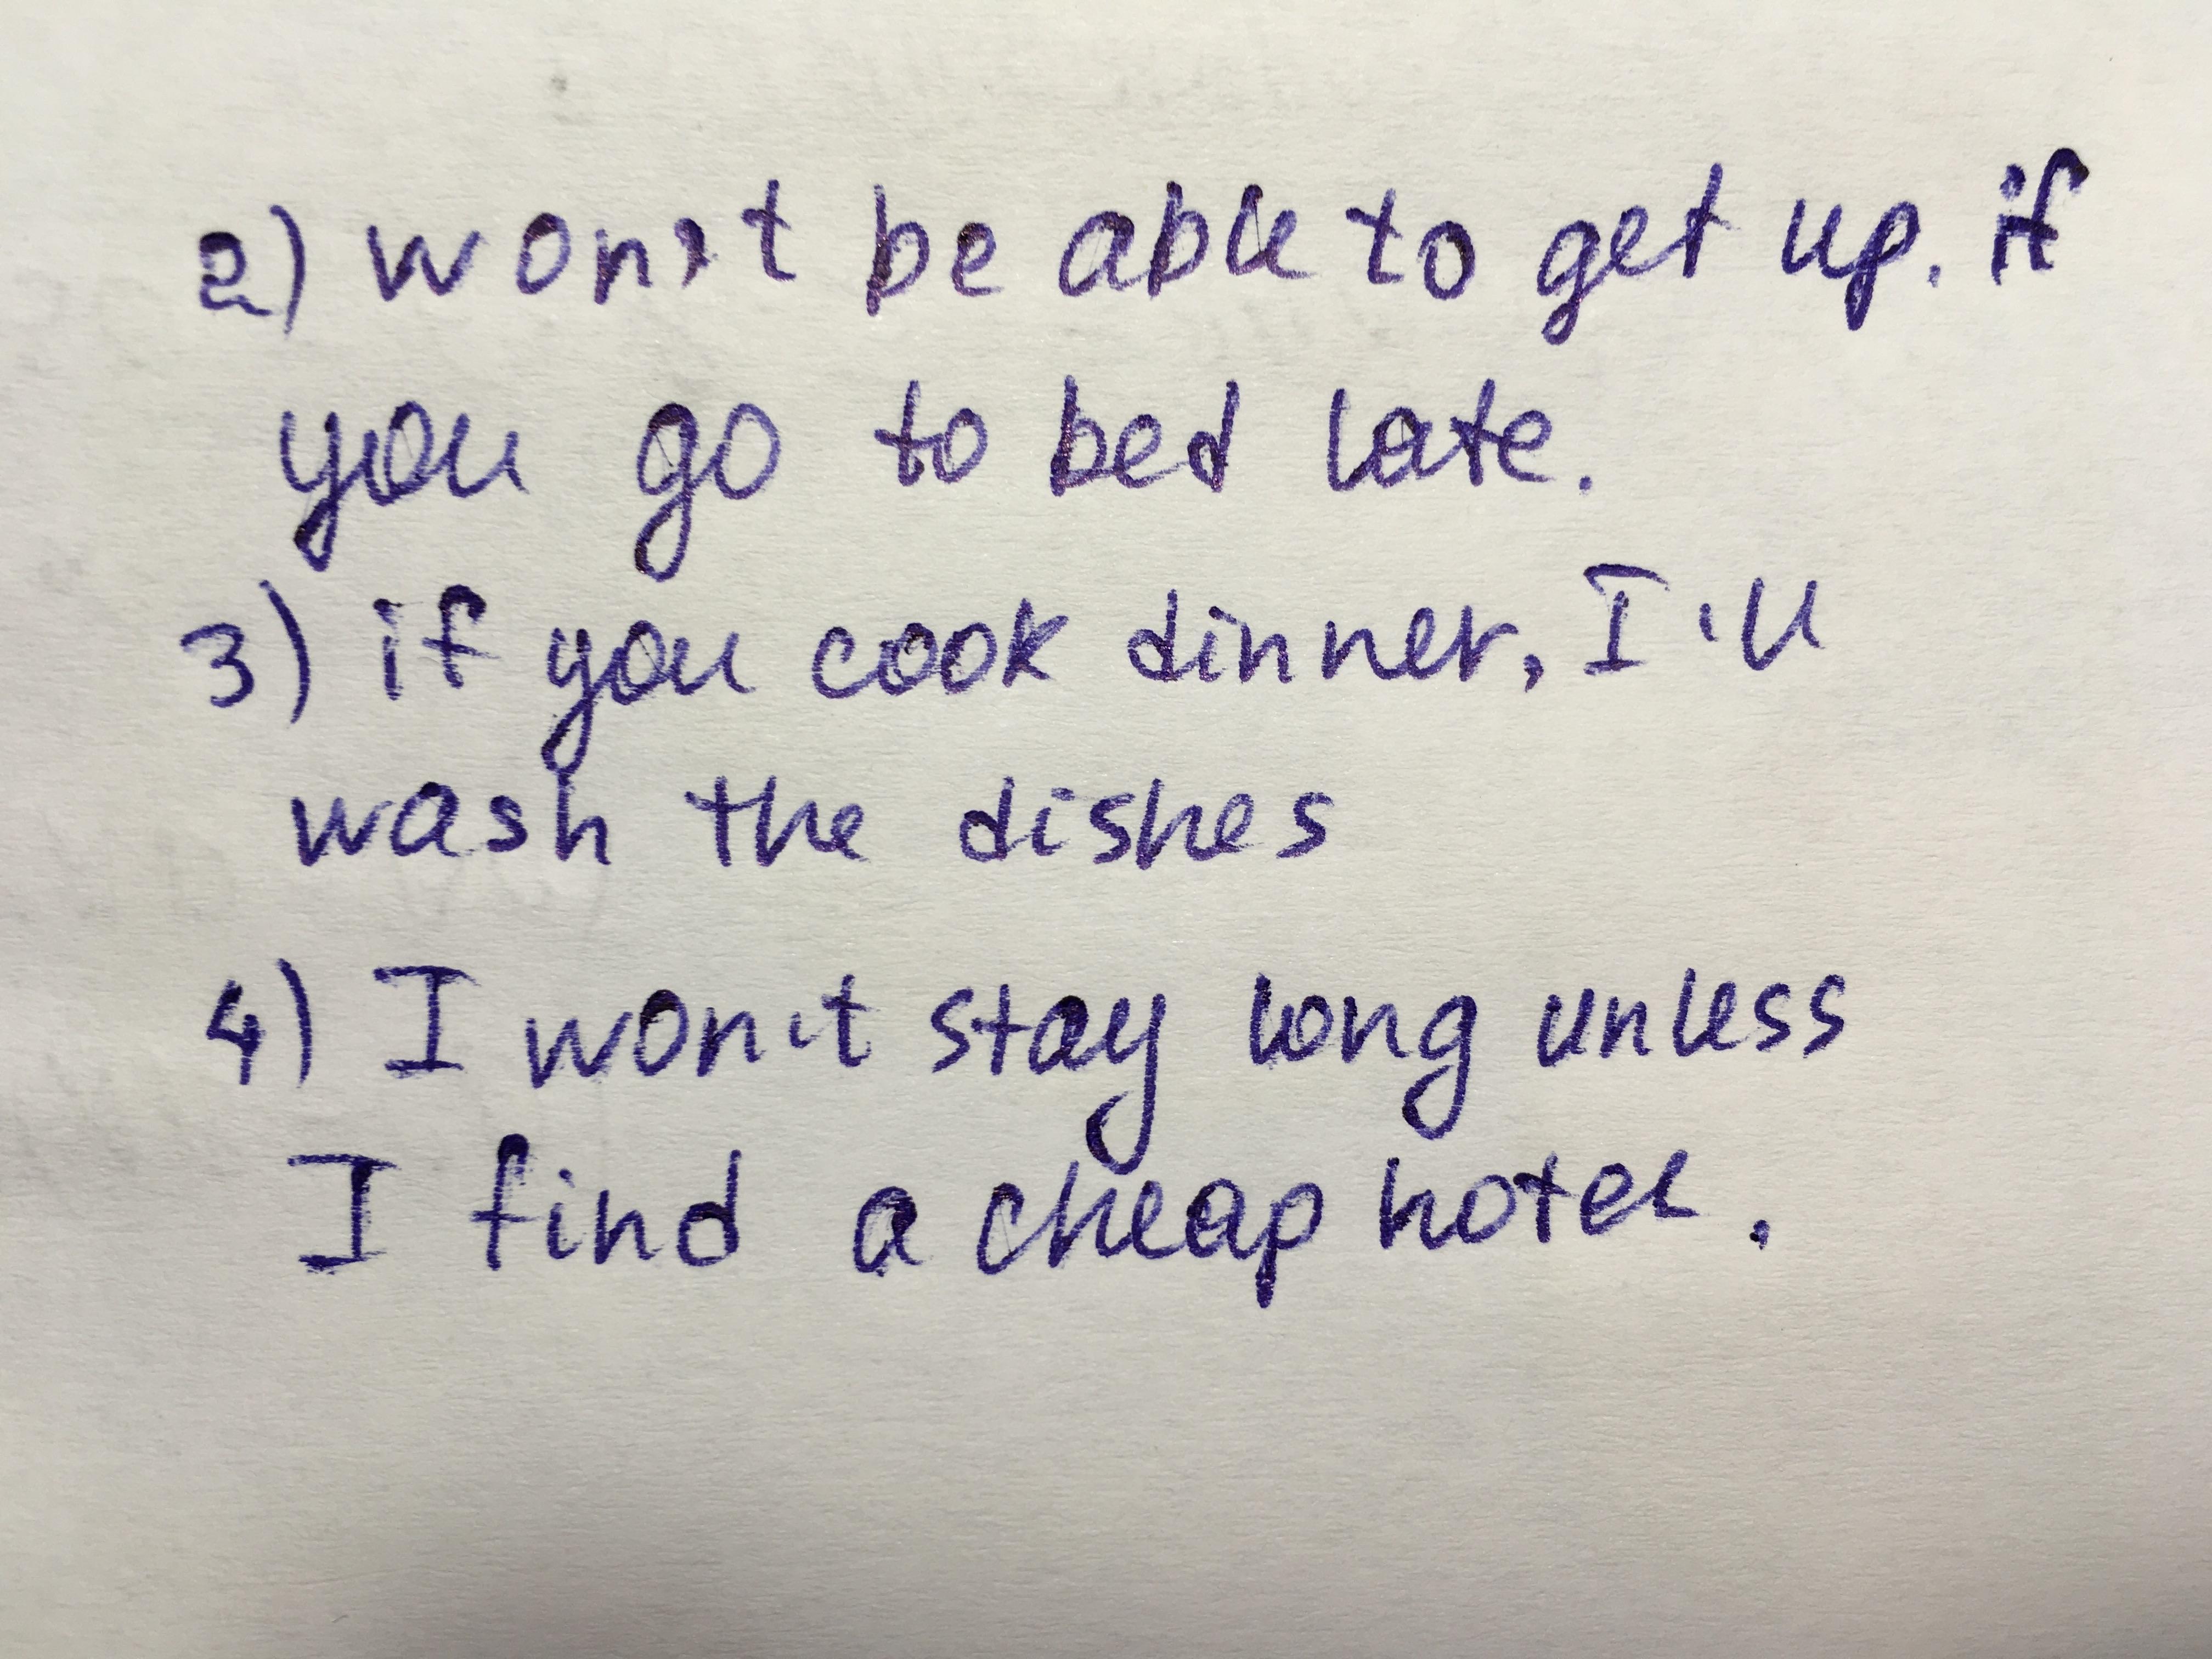 2) won't be able to get up. if
you go to bed late.
3) if you cook dinner, I'll
wash the dishes
4) I won't stay long unless
I find a cheap hotel.